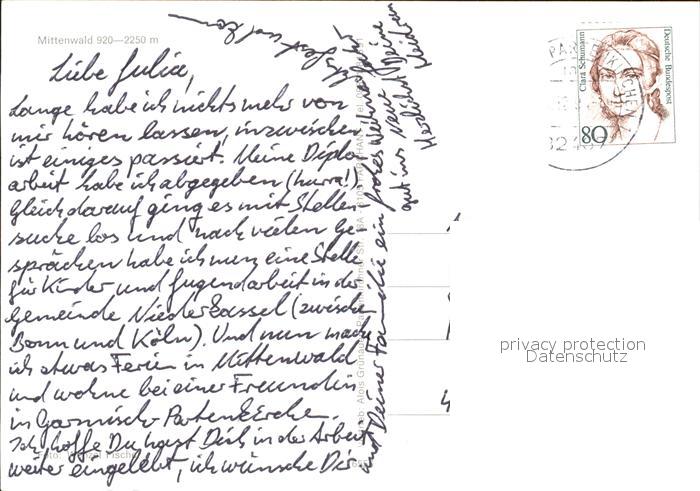 Mittenwald 920—2250 m
Liebe Julia,
Lange habe ich nichts mehr von
mir hören lassen, inzwischen
ist einiges passiert. Meine Diplom-
arbeit habe ich abgegeben (hurra!)
Gleich darauf ging es mit Stellen-
suche los und nach vielen Ge-
sprächen habe ich nun eine Stelle
für Kinder und Jugendarbeit in der
Gemeinde Niederkassel (zwischen
Bonn und Köln). Und nun mache
ich etwas Ferien in Mittenwald
und wohne bei einer Freundin
in Garmisch-Partenkirchen.
Ich hoffe Du hast Dich in der Arbeit
weiter eingelebt, ich wünsche Dir
und Deiner Familie ein frohes Weihnachts-
fest und
gut ins Neue
Herzlichst Deine
Clara Schumann
Deutsche Bundespost
80
privacy protection
Datenschutz